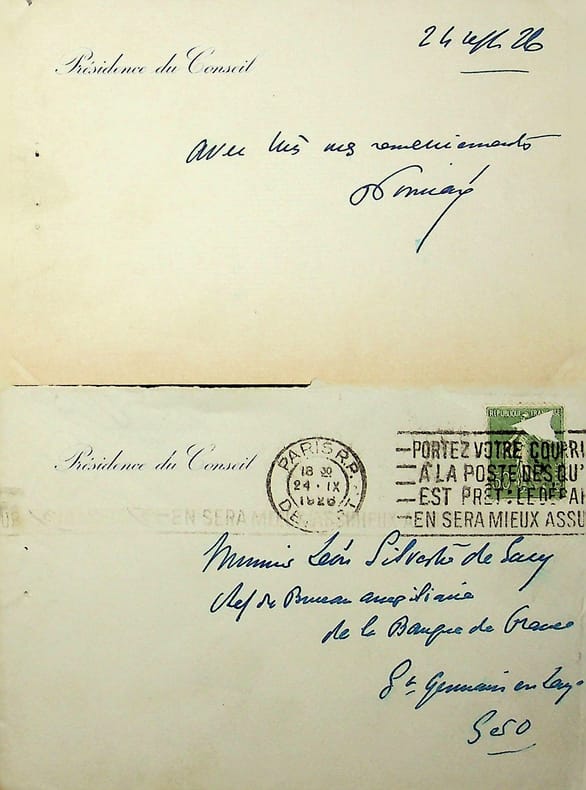 24 sept 26
Présidence du Conseil
avec tous mes remerciements
Poincaré
REPUBLIQUE FRANÇAISE
Présidence du Conseil
PARIS R.P.
18 30
24 · IX
1926
DEPART
PORTEZ VOTRE COURRI
A LA POSTE DES QU'
EST PRET: LE DEPA
EN SERA MIEUX ASSU
EN SERA MIEUX
Monsieur Léon Silvestre de Sacy
chef du Bureau auxiliaire
de la Banque de France
St Germain en Laye
S et O